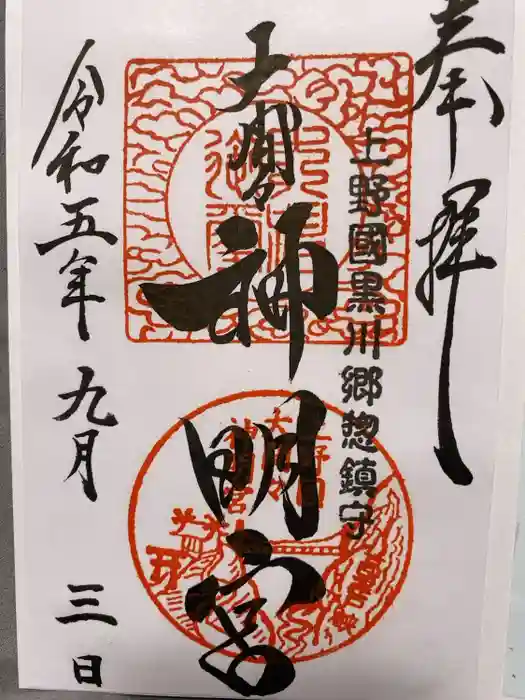 奉拝
上野國黒川郷惣鎮守
大間々
神明宮
令和五年 九月 三日